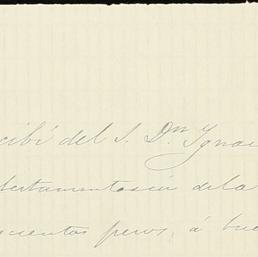 cibí del S. Dn Ignac
testamentosia dela
cientos pesos, á bue